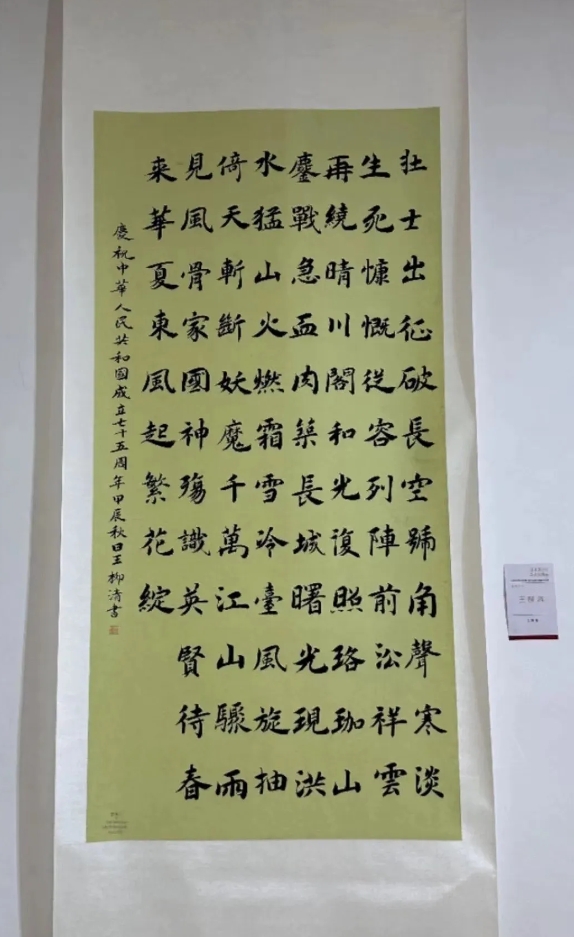 壮士出征破長空號角聲寒淡
生死慷慨從容列陣前訟祥雲
再繞晴川閣和光復照珞珈山
鏖戰急血肉築長城曙光現洪
水猛山火燃霜雪冷臺風旋抽
倚天斬斷妖魔千萬江山驟雨
見風骨家國神殤識英賢待春
来華夏東風起繁花綻
慶祝中華人民共和國成立七十五周年甲辰秋日王柳清書